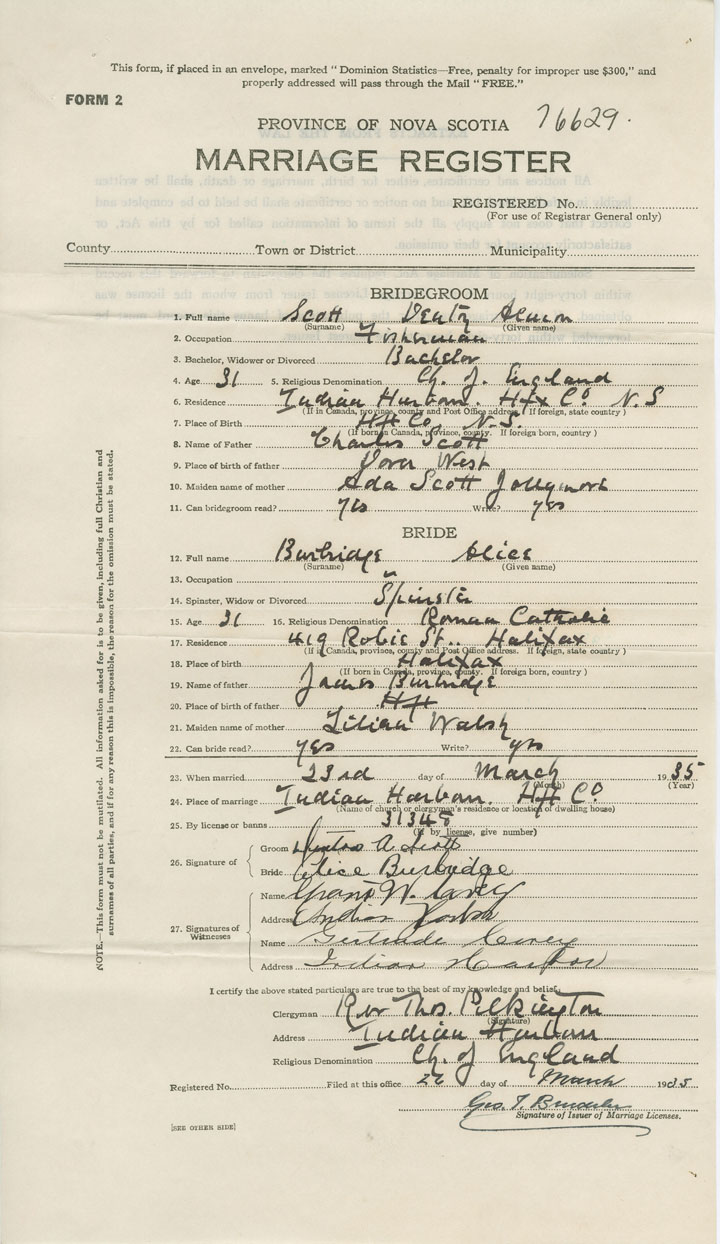 This form, if placed in an envelope, marked " Dominion Statistics—Free, penalty for improper use $300," and
properly addressed will pass through the Mail " FREE."
FORM 2
PROVINCE OF NOVA SCOTIA 76629.
MARRIAGE REGISTER
REGISTERED No.
(For use of Registrar General only)
County Town or District Municipality
BRIDEGROOM
1. Full name Scott
(Surname) (Given name)
2. Occupation Fisherman
3. Bachelor, Widower or Divorced Bachelor
4. Age 31 5. Religious Denomination Ch. of England
6. Residence Indian Harbour. Hfx Co N.S
(If in Canada, province, county and Post Office address. If foreign, state country )
7. Place of Birth Hfx Co. N.S.
(If born in Canada, province, county. If foreign born, country )
8. Name of Father Charles Scott
9. Place of birth of father West
10. Maiden name of mother Ada Scott Jollymore
11. Can bridegroom read? yes Write? yes
BRIDE
12. Full name Burbridge Alice
(Surname) (Given name)
13. Occupation "
14. Spinster, Widow or Divorced Spinster
15. Age 31 16. Religious Denomination Roman Catholic
17. Residence 419 Robie St.. Halifax
(If in Canada, province, county and Post Office address. If foreign, state country )
18. Place of birth Halifax
(If born in Canada, province, county. If foreign born, country )
19. Name of father James Burbridge
20. Place of birth of father Hfx
21. Maiden name of mother Lilian Walsh
22. Can bride read? yes Write? yes
23. When married 23rd day of March 1935
(Month) (Year)
24. Place of marriage Indian Harbour. Hfx Co
(Name of church or clergyman's residence or location of dwelling house)
25. By license or banns 31348
(If by license, give number)
26. Signature of
Groom A Scott
Bride Alice Burbridge
27. Signatures of
Witnesses
Name Grant W.
Address Indian Harbor
Name Gertrude
Address Indian Harbor
I certify the above stated particulars are true to the best of my knowledge and belief.
Clergyman Rev Thos. Pilkington
(Signature)
Address Indian Harbour
Religious Denomination Ch. of England
Registered No. Filed at this office 26 day of March 1935
Geo. T.
Signature of Issuer of Marriage Licenses.
[SEE OTHER SIDE]
NOTE.—This form must not be mutilated. All information asked for is to be given, including full Christian and
surnames of all parties, and if for any reason this is impossible, the reason for the omission must be stated.